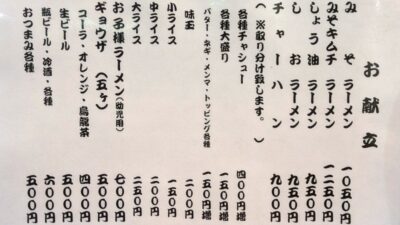 お献立
みそラーメン 一〇五〇円
みそキムチラーメン 一二五〇円
しょう油ラーメン 九五〇円
しおラーメン 九五〇円
チャーハン 九〇〇円
(※取り分け致します。)
各種チャシュー 四〇〇円増
各種大盛り 一五〇円増
バター・ネギ・メンマ・トッピング各種 一五〇円増
味玉 一〇〇円
小ライス 一五〇円
中ライス 二〇〇円
大ライス 二五〇円
お子様ラーメン(幼児用) 七〇〇円
ギョウザ(五ヶ) 五〇〇円
コーラ・オレンジ・烏龍茶 四〇〇円
生ビール 五〇〇円
瓶ビール・冷酒・各種 六〇〇円
おつまみ各種 五〇〇円